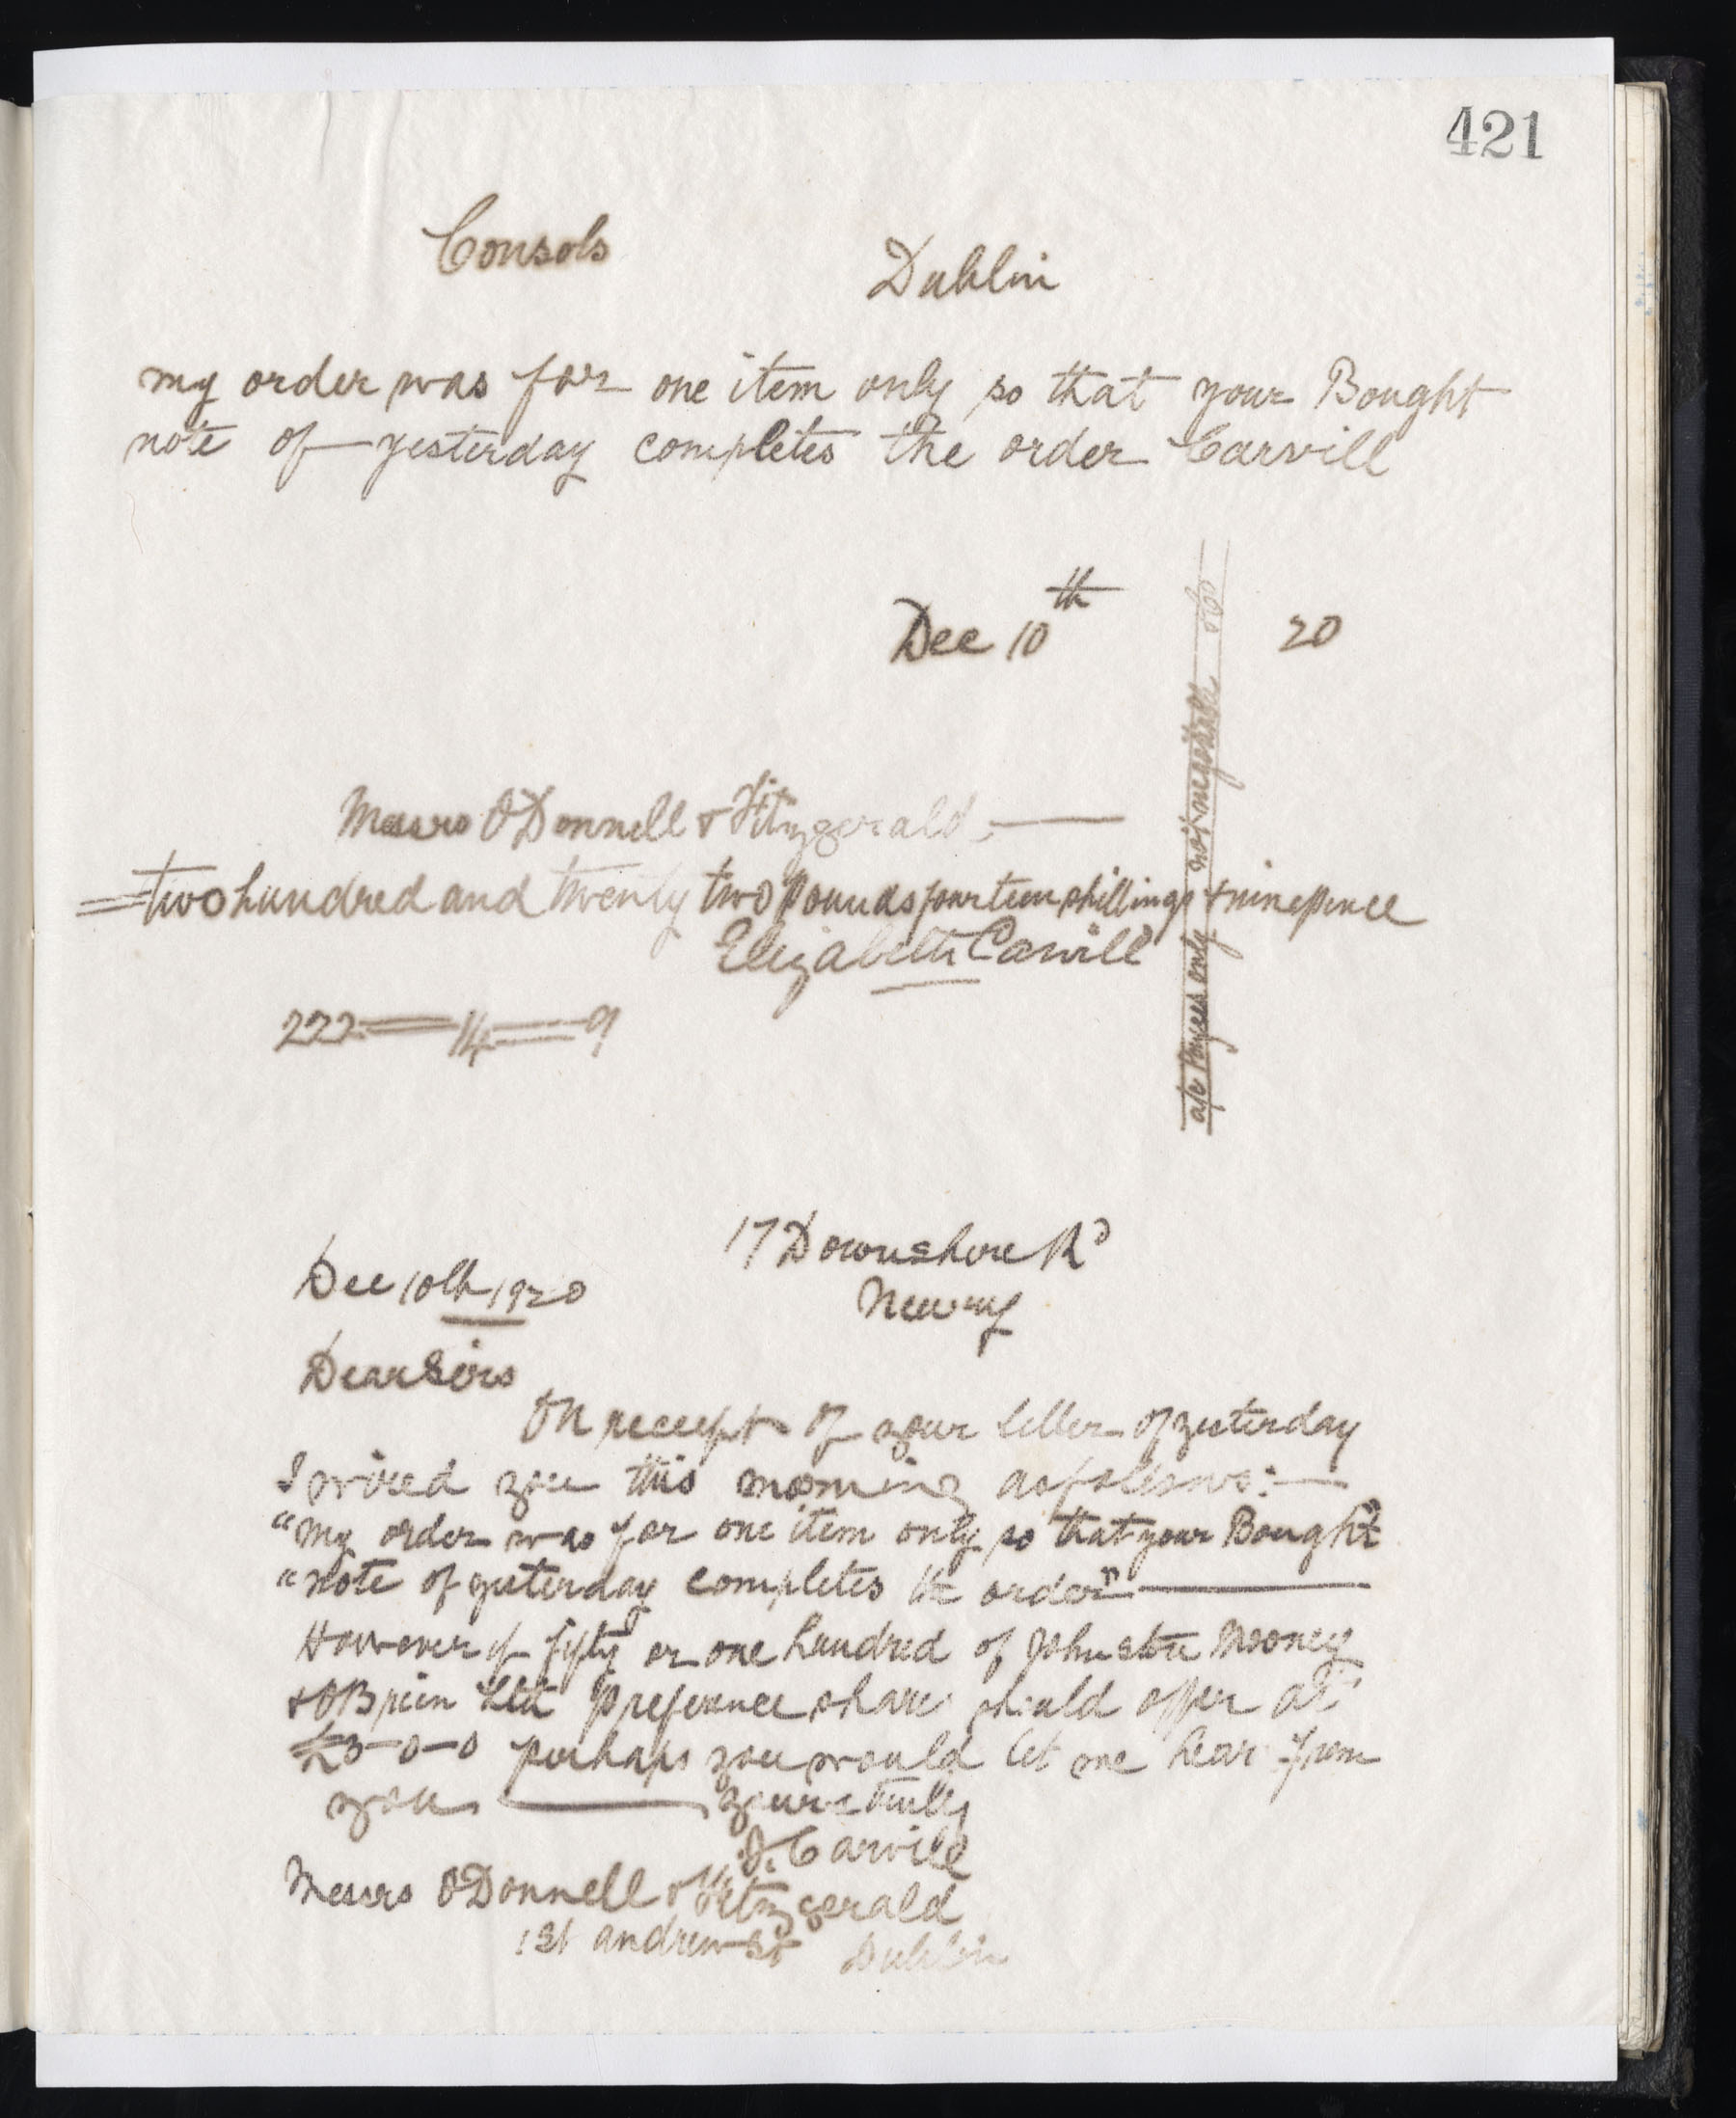 421
Consols
Dublin
my order was for one item only so that your Bought
note of yesterday completes the order Carvill
Dec 10th 20
a/c Payees only not negotiable & Co
Messrs O'Donnell & Fitzgerald
two hundred and twenty two pounds fourteen shillings & ninepence
Elizabeth Carvill
222 = 14 = 9
17 Downshire Rd
Dec 10th 1920
Newry
Dear Sirs
On receipt of your letter of yesterday
I wired you this morning as follows:—
"My order was for one item only so that your Bought
"note of yesterday completes the order" —
However if fifty or one hundred of Johnston Mooney
& OBrien Ltd Preference share should offer at
£3-0-0 perhaps you would let me hear from
you — yours truly
J. Carvill
Messrs O'Donnell & Fitzgerald
1 St Andrew St Dublin